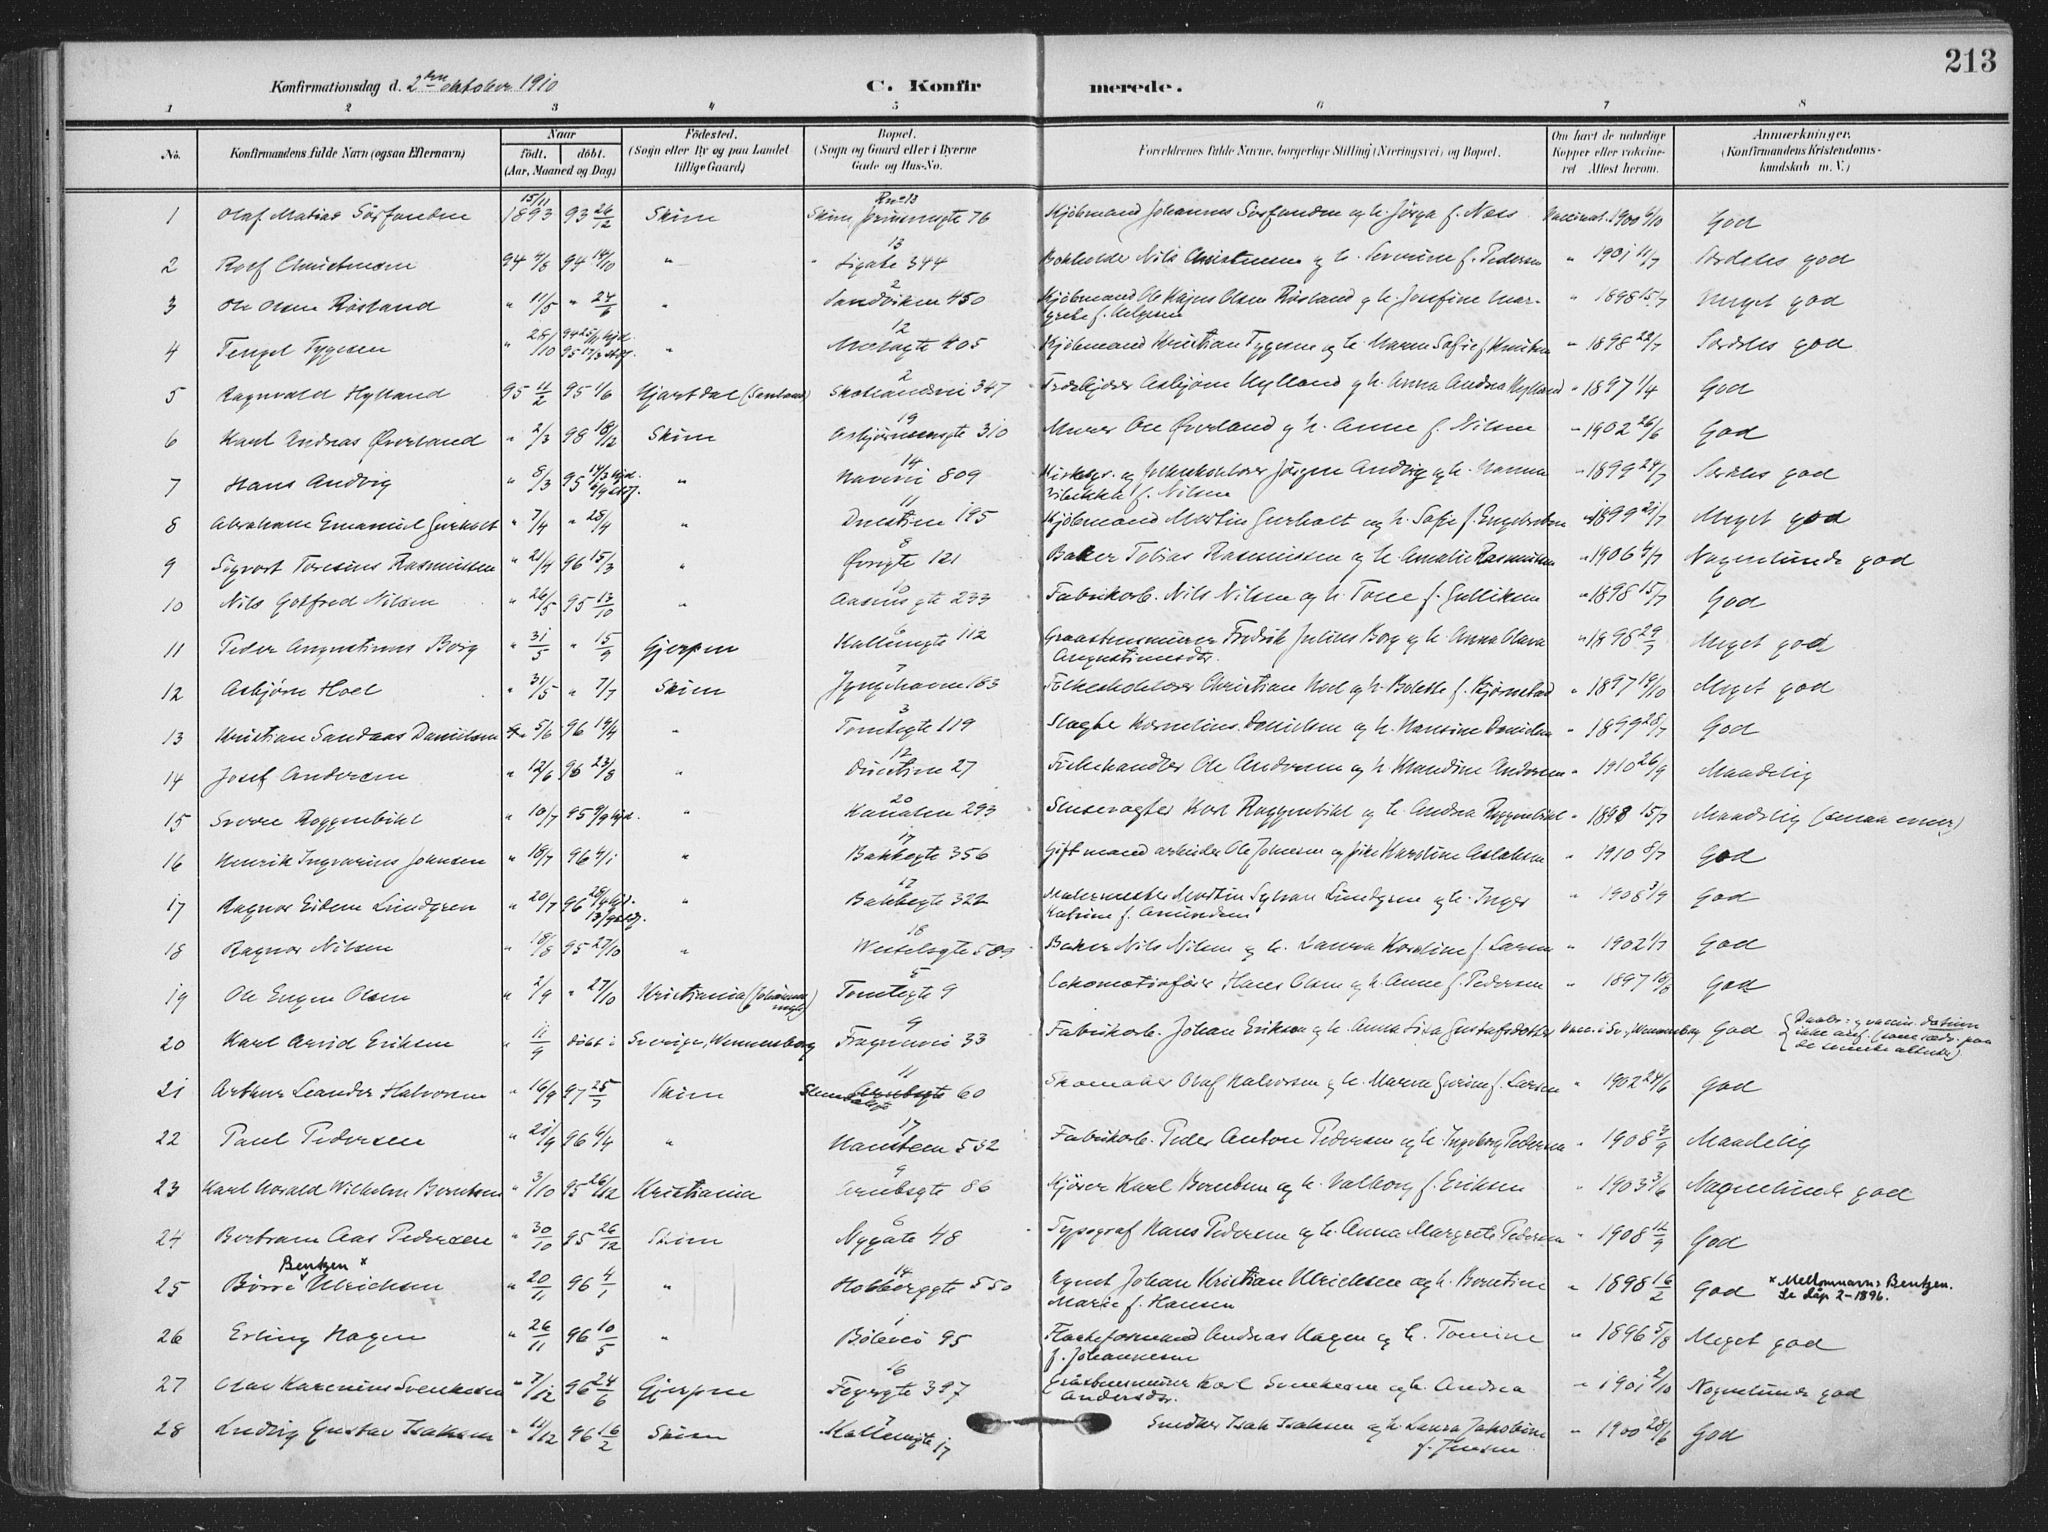 213
Konfirmationsdag d. 2den oktober 1910
C. Konfirmerede.
1 2 3 4 5 6 7 8
No. Konfirmandens fulde Navn (ogsaa Efternavn) Naar födt. döbt. (Aar, Maaned og Dag) Födested. (Sogn eller By og paa Landet tillige Gaard) Bopæl. (Sogn og Gaard eller i Byerne Gade og Hus-No. Forældrenes fulde Navne, borgerlige Stilling (Næringsvei) og Bopæl. Om havt de naturlige Kopper eller vakcineret. Attest herom. Anmærkninger. (Konfirmandens Kristendomskundskab m. V.)
1 Olaf Matias Sörfonden 15/11 1893 93 26/12 Skien Skien, 76 Kjöbmand Johannes Sörfonden og h. f. Næss Vaccinat. 1900 6/10 God
2 Rolf Christensen 94 4/8 94 14/10 " 13 Ligate 344 Bokholder Nils Christensen og h. Severine f. Pedersen " 1901 11/7 Særdeles god
3 Ole Olsen Røsland " 11/5 " 24/6 " 2 Sandviken 450 Kjöbmand Ole Olsen Røsland og h. Josefine Margrete f. Helgesen " 1898 15/7 Meget god
4 Tengel Tygesen " 28/10 94 25/11 hjd. 95 17/3 " 12 405 Kjöbmand Kristian Tygesen og h. Maren Sofie f. Knutsen " 1898 22/7 Særdeles god
5 Ragnvald Hylland 95 11/2 95 1/6 Hjartdal (Sauland) 2 347 Asbjørn Hylland og h. Anna Andrea Hylland " 1897 1/4 God
6 Karl Andreas Øverland " 2/3 98 18/12 Skien 19 Asbjørnsensgte 310 Murer Ole Øverland og h. Anne f. Nilsen " 1902 26/6 God
7 Hans Andvig " 8/3 95 14/3 hjd. " 14 809 Kirkesgr. og Folkeskolelærer Jörgen Andvig og h. Hanna f. Nilsen " 1899 24/7 Særdeles god
8 Abraham Emanuel Gurholt " 7/4 " 28/4 " 11 Duestien 195 Kjöbmand Martin Gurholt og h. Sofie f. Engebretsen " 1899 21/7 Meget god
9 Sigvart Toresius Rasmussen " 21/4 96 15/3 " 8 Øvregte 121 Baker Tobias Rasmussen og h. Amalie Rasmussen " 1906 4/7 Nogenlunde god
10 Nils Gotfred Nilsen " 26/5 95 13/10 " 10 Aasensgte 233 Fabrikarb. Nils Nilsen og h. Tone f. Gulliksen " 1898 15/7 God
11 Peder Augustinus Borg " 31/5 " 15/9 Gjerpen 6 112 Graastensmurer Fredrik Julius Borg og h. Anna Olava Augustinusdtr. " 1898 29/7 Meget god
12 Asbjørn Hoel " 31/5 " 7/7 Skien 7 183 Folkeskolelærer Christian Hoel og h. Bolette f. Bjørnstad " 1897 19/10 Meget god
13 Kristian Sandaas Danielsen " 5/6 96 19/4 " 3 Tomtegte 119 Kornelius Danielsen og h. Hansine Danielsen " 1899 28/7 God
14 Josef Andersen " 12/6 96 23/8 " 12 Duestien 27 Fiskehandler Ole Andersen og h. Klaudine Andersen " 1910 26/9 Maadelig
15 Sverre Roggenbihl " 10/7 95 9/9 hjd. " 20 Kanalen 293 Slusevogter Karl Roggenbihl og h. Andrea Roggenbihl " 1898 15/7 Maadelig (smaa evner)
16 Henrik Ingvarius Johnsen " 18/7 96 4/1 " 17 Bakkegte 356 Gift mand arbeider Ole Johnsen og Pike Karoline Aslaksen " 1910 8/7 God
17 Ragnar Eidem Lundgren " 20/7 96 28/4 hjd. " 17 Bakkegte 322 Malermester Martin Sylvan Lundgren og h. Inger Katrine f. Amundsen " 1908 3/9 God
18 Ragnar Nilsen " 18/8 95 27/10 " 18 Wesselsgte 589 Baker Nils Nilsen og h. Laura Karoline f. Larsen " 1902 1/7 God
19 Ole Eugen Olsen " 2/9 " 27/10 Kristiania 5 Tomtegte 9 Lokomotivfører Hans Olsen og h. Anne f. Pedersen " 1897 18/8 God
20 Karl Arvid Eriksen " 11/9 döbt i Sverige, Wennersborg 9 33 Fabrikarb. Johan Eriksen og h. Anna Lisa Gustafsdotter Vacc. i Sv., Wennersborg God (Daabs- og vaccin. datum ikke angf. (som sædv. paa de svenske attester)
21 Arthur Leander Halvorsen " 16/9 97 25/7 Skien 11 60 Skomaker Olaf Halvorsen og h. Maren f. Larsen " 1902 24/6 God
22 Paul Pedersen " 21/9 96 6/4 " 17 Hansteen 532 Fabrikarb. Peder Anton Pedersen og h. Ingeborg Pedersen " 1908 3/9 Maadelig
23 Karl Harald Wilhelm Berntsen " 3/10 95 26/12 Kristiania 9 Arnebsgte 86 Kjører Karl Berntsen og h. Valborg f. Eriksen " 1903 3/6 Nogenlunde god
24 Bertram Aas Pedersen " 30/10 95 26/12 Skien 6 Nygate 48 Typograf Hans Pedersen og h. Anna Margrete Pedersen " 1908 11/9 God
25 Børre Bentzen × Ulrichsen " 20/11 96 4/1 " 14 Holbergsgte 550 Agent Johan Kristian Ulrichsen og h. Berntine Marie f. Hansen " 1898 16/2 God × Mellomnavn: Bentzen. Se dåp 2-1896.
26 Erling Hagen " 26/11 96 10/5 " 1 Bøleveí 95 Andreas Hagen og h. Tomine f. Johannesen " 1896 5/8 Meget god
27 Olav Karenius Svenkesen " 7/12 96 24/6 Gjerpen 16 397 Graastensmurer Karl Svenkesen og h. Andrea Andersdtr. " 1901 2/10 Nogenlunde god
28 Ludvig Gustav Isaksen " 11/12 96 16/2 Skien 17 Smedker Isak Isaksen og h. Laura Jakobine f. Jensen " 1900 28/6 God